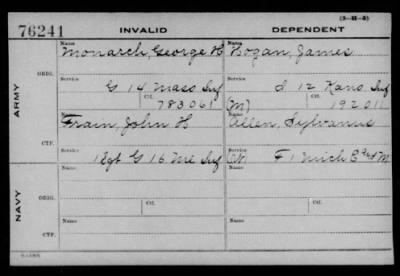 (3-111-5)
76241
INVALID DEPENDENT
Name Name
Monarch, George H Bogan, James
ORIG.
Service Service
G 14 Mass Inf I 12 Kans Inf
Ctf. Ctf.
783061 (M) 192011
ARMY
Name Name
Frain, John H Allen, Sylvanus
CTF.
Service Service
1 Sgt G 16 Me Inf F 1 Mich E and M
Name Name
NAVY
ORIG.
Ctf. Ctf.
Name Name
CTF.